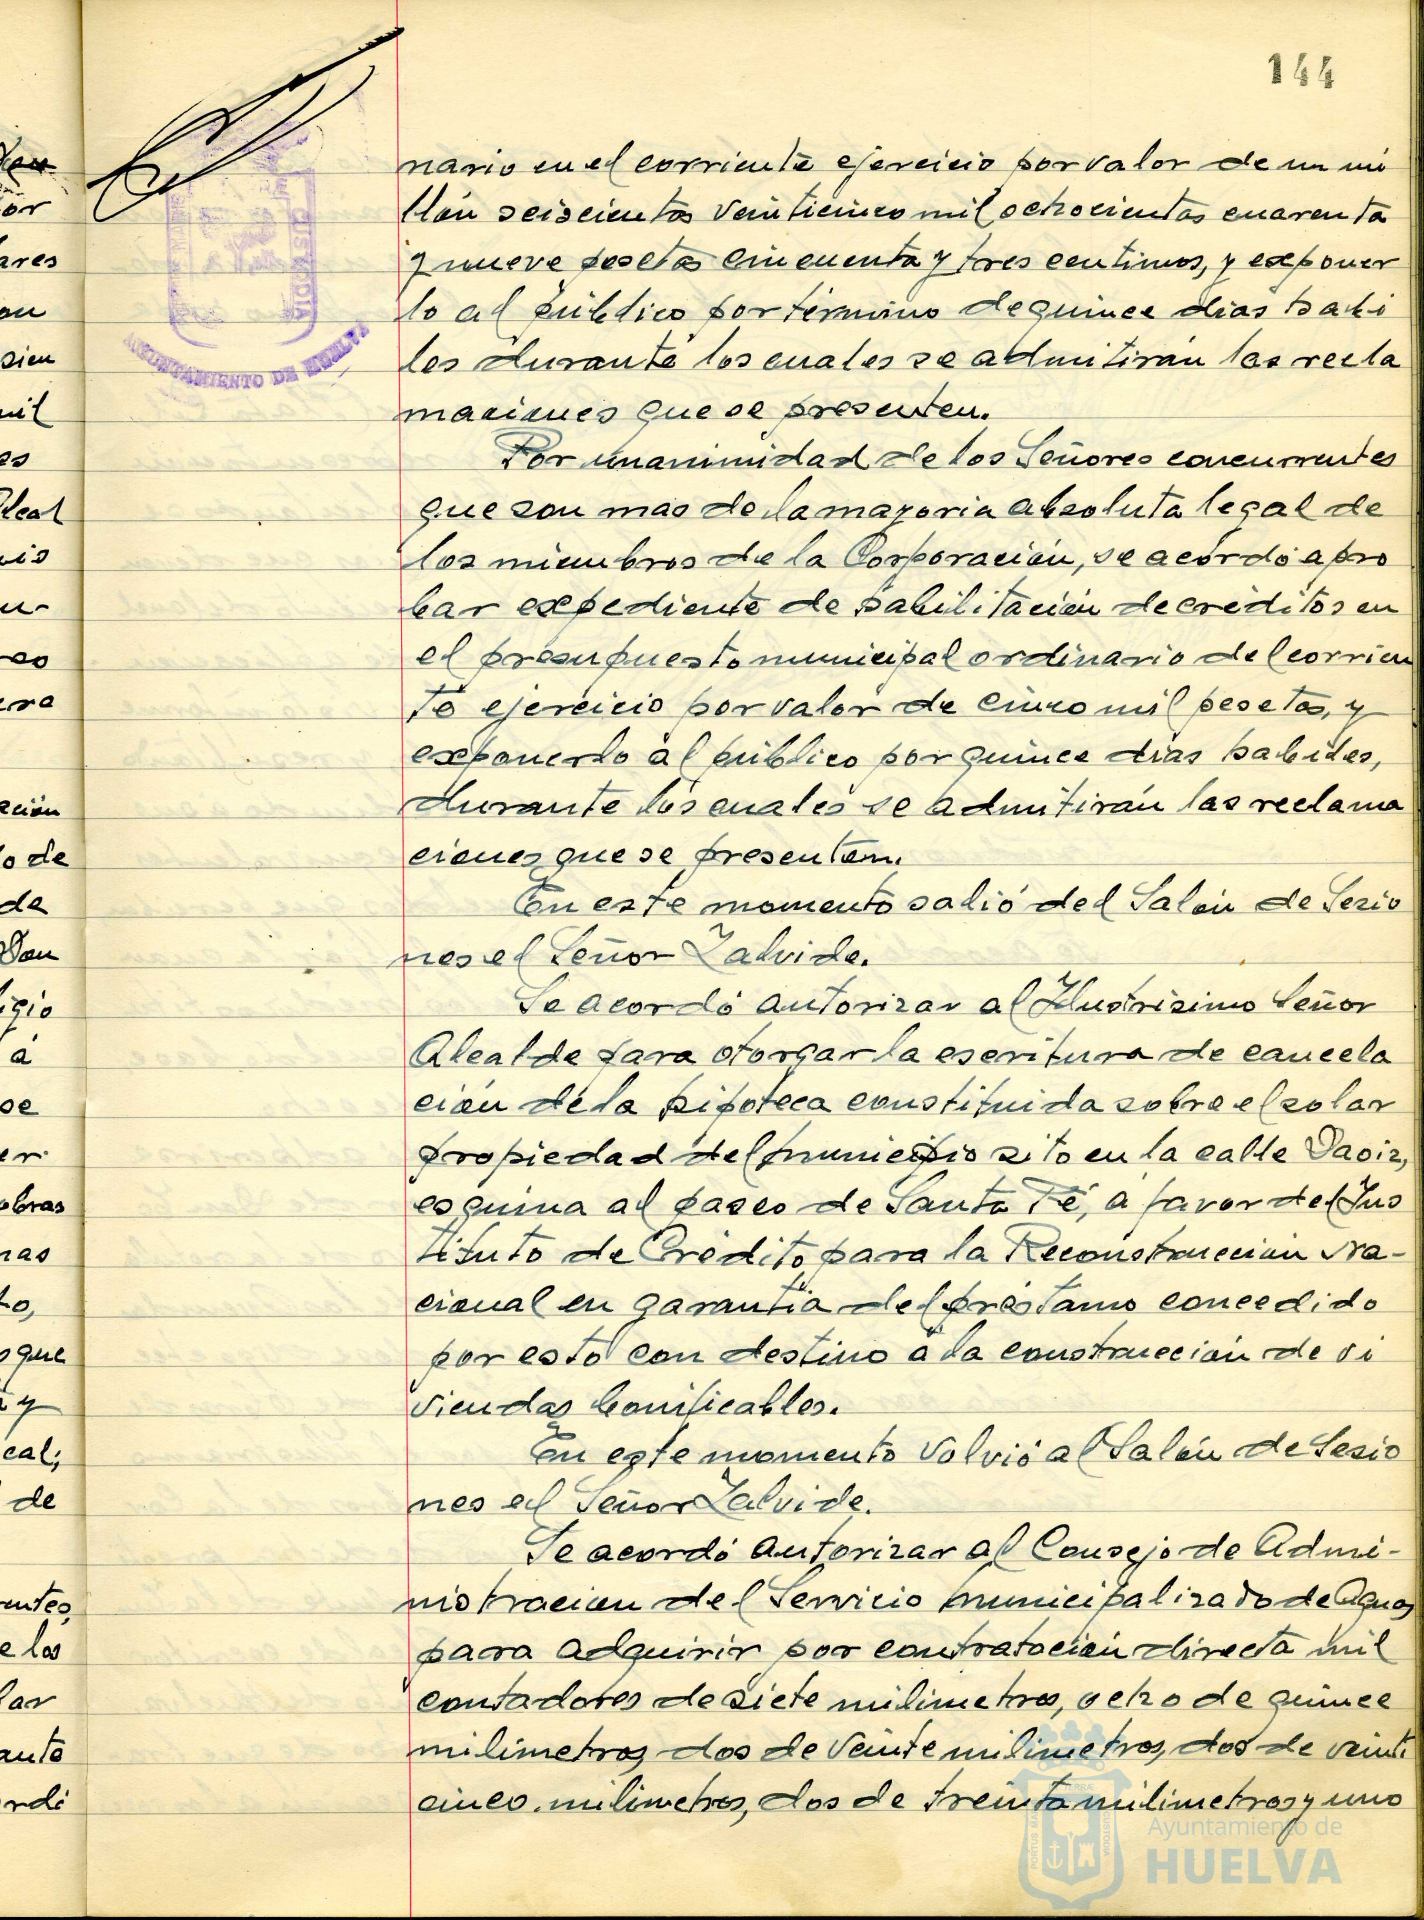 144
nario en el corriente ejercicio por valor de un mi
llón seiscientas veinticinco mil ochocientas cuarenta
y nueve pesetas cincuenta y tres centimos, y exponer
lo al público por término de quince dias habi
les durante los cuales se admitirán las recla
maciones que se presenten.
Por unanimidad de los Señores concurrentes
que son mas de la mayoria absoluta legal de
los miembros de la Corporación, se acordó apro
bar expediente de habilitación de créditos en
el presupuesto municipal ordinario del corrien
te ejercicio por valor de cinco mil pesetas, y
exponerlo al público por quince dias habiles,
durante los cuales se admitirán las reclama
ciones que se presenten.
En este momento salió del Salón de Sesio
nes el Señor Zalvide.
Se acordó autorizar al Ilustrisimo Señor
Alcalde para otorgar la escritura de cancela
ción de la hipoteca constituida sobre el solar
propiedad del municipio sito en la calle Daoiz,
esquina al paseo de Santa Fé, a favor del Ins
tituto de Crédito para la Reconstrucción Na-
cional en garantia del préstamo concedido
por esto con destino a la construcción de vi
viendas bonificables.
En este momento volvió al Salón de Sesio
nes el Señor Zalvide.
Se acordó autorizar al Consejo de Admi-
nistracion del Servicio municipalizado de Aguas
para adquirir por contratación directa mil
contadores de siete milimetros, ocho de quince
milimetros, dos de veinte milimetros, dos de veinti
cinco milimetros, dos de treinta milimetros y uno
CUSTODIA
AYUNTAMIENTO DE HUELVA
or
ares
on
sien
mil
es
u-
ación
o de
da
Don
igio
á
se
er
obras
nas
to,
s que
y
cal;
de
entes,
e los
lar
ante
ordi
Ayuntamiento de
HUELVA